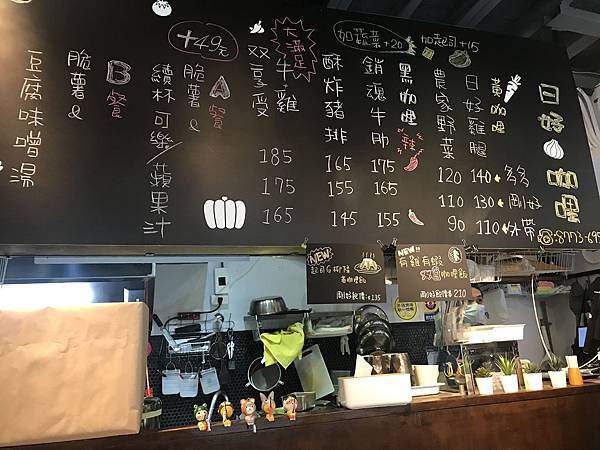 日好咖哩
☎:8773-695
黃咖哩
日好雞腿
140 多多
130 剛好
110 外帶
農家野菜
120
110
90
加蔬菜+20
加起司+15
黑咖哩
辣
銷魂牛肋
175
165
155
酥炸豬排
165
155
145
大滿足
牛雞
双享受
185
175
165
+49元
A餐
脆薯&
續杯可樂/蘋果汁
B餐
脆薯&
豆腐味噌湯
NEW
黃咖哩飯
剛好飽價:$135
NEW!!
有雞有蝦
双醬咖哩飯
剛好飽價$ 210